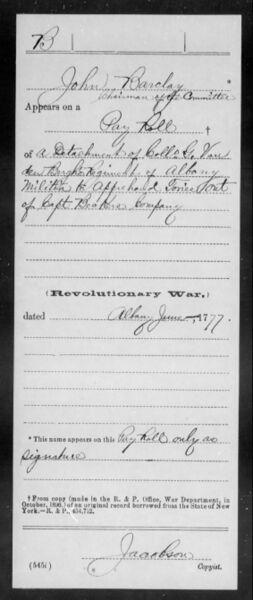 B
John Barclay *
Chairman of ye Committee
Appears on a
Pay Roll †
of a Detachment of Coll. G. Van
den Berghs Regiment of Albany
Militia to Apprehend Tories Out
of Capt Company
(Revolutionary War.)
dated Albany June —, 1777.
*This name appears on this Pay Roll only as
signature
†From copy (made in the R. & P. Office, War Department, in
October, 1896,) of an original record borrowed from the State of New
York.—R. & P., 434,752.
Jacobson
(545i) Copyist.